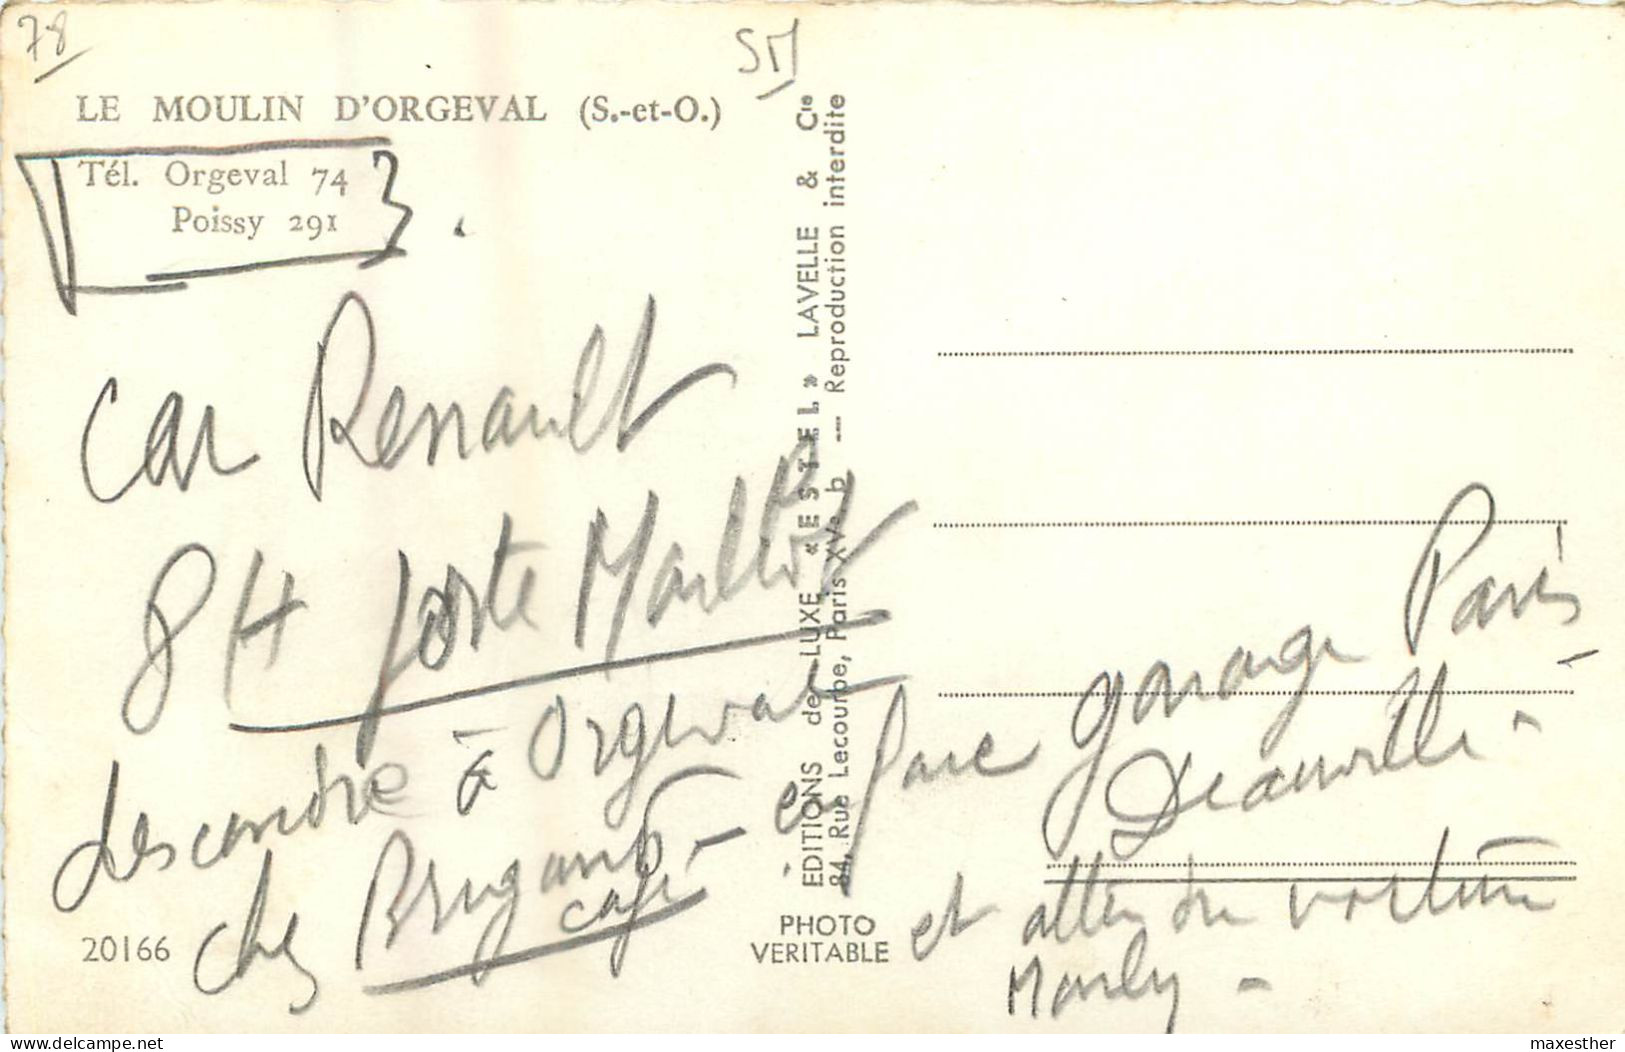 78
SM
LE MOULIN D'ORGEVAL (S.-et-O.)
Tél. Orgeval 74
Poissy 291
Car Renault
8 H Porte Maillot
descendre à Orgeval
chez Brugand - en face garage Paris
Deauville -
café
et attendre voiture
Marly -
EDITIONS de LUXE « ESTEL » LAVELLE & Cie
84, Rue Lecourbe, Paris XVe b — Reproduction interdite
PHOTO
VERITABLE
20166
delcampe.net
maxesther